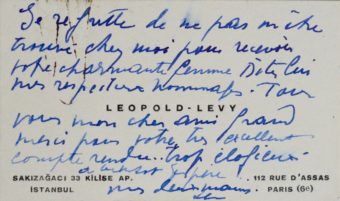 Je regrette de ne pas m'être
trouvé chez moi pour recevoir
votre charmante femme Dites lui
mes respectueux hommages. Pour
LEOPOLD-LEVY
vous mon cher ami grand
merci pour votre très excellent
compte rendu.. trop élogieux
SAKIZAĞACI 33 KİLİSE AP.
İSTANBUL
à bientôt j'espère
112 RUE D'ASSAS
PARIS (6e)
vos deux mains